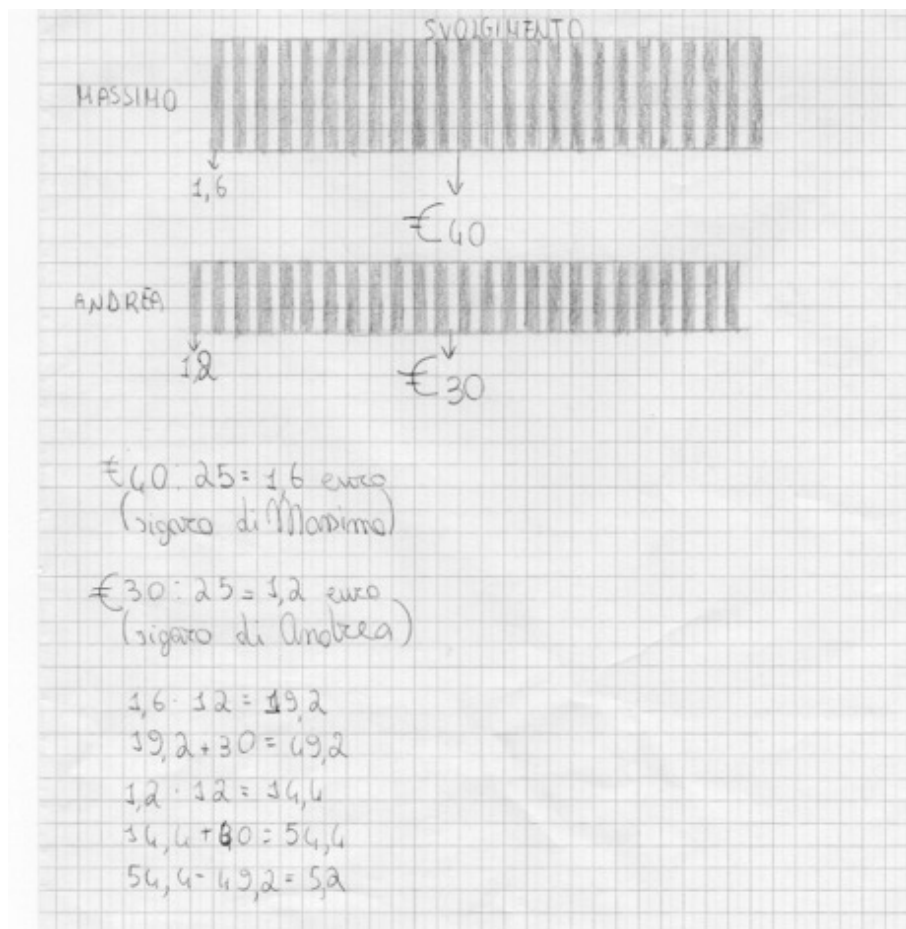 SVOLGIMENTO
MASSIMO
1,6
€40
ANDREA
1,2
€30
€40:25=1,6 euro
(sigaro di Massimo)
€30:25=1,2 euro
(sigaro di Andrea)
1,6·12=19,2
19,2+30=49,2
1,2·12=14,4
14,4+40=54,4
54,4-49,2=5,2